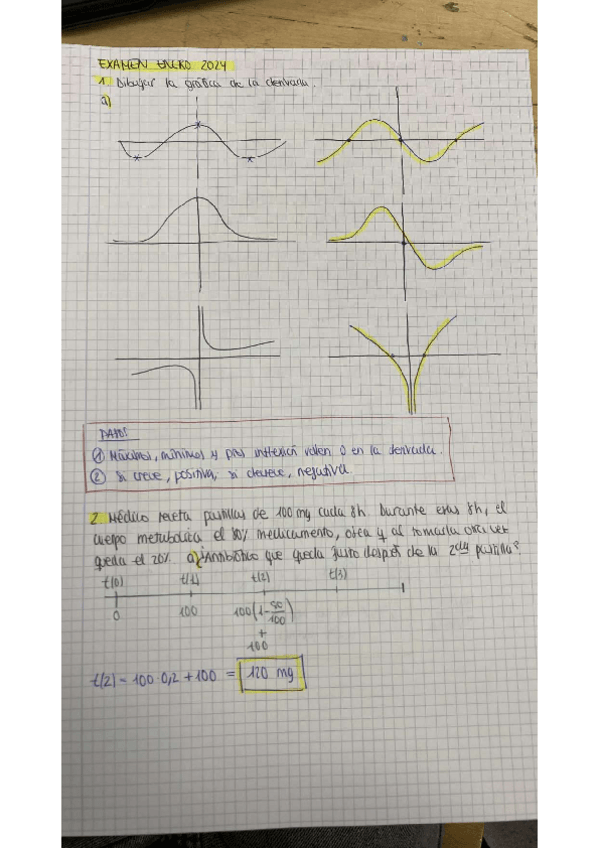 EXAMEN ENERO 2024
1. Dibujar la gráfica de la derivada.
a)
DATOS
① Máximos, mínimos y ptos inflexión valen 0 en la derivada.
② Si crece, positiva; si decrece, negativa.
2. Médico receta pastillas de 100 mg cada 8h. Durante esas 8h, el
cuerpo metaboliza el 80% medicamento, y al tomarla otra vez
queda el 20%. a) ¿Antibiótico que queda justo después de la 2da pastilla?
t(0) t(1) t(2) t(3)
0 100 100(1-80/100)
+
100
t(2) = 100·0,2 + 100 = 120 mg